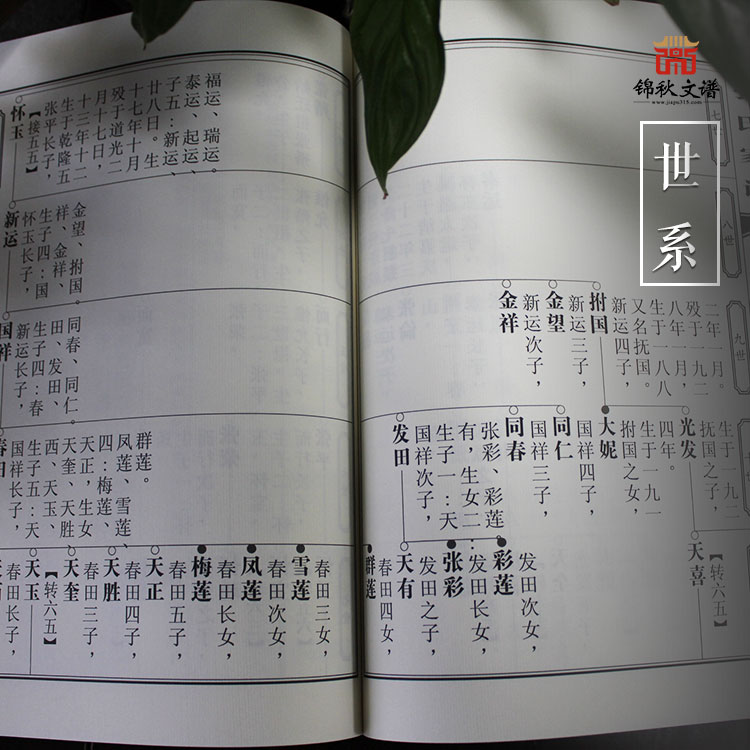 锦秋文谱
www.jiapu315.com
世系
八世
九世
二年一月，
殁于一九二
八年一月，
生于一八八
又名抚国。
新运四子，
拊国
新运三子，
金望
新运次子，
金祥
生于一九二
抚国之子，
光发
四年。
生于一九一
拊国之女，
大妮
国祥四子，
同仁
国祥三子，
同春
张彩、彩莲。
有，生女二：
生子一：天
国祥次子，
发田
【转六五】
天喜
发田次女，
彩莲
发田长女，
张彩
发田之子，
天有
春田四女，
群莲
福运、瑞运。
泰运、起运、
子五：新运、
廿八日。生
十七年十月
殁于道光二
月十七日，
十三年十二
生于乾隆五
张平长子，
【接五五】
怀玉
金望、拊国。
祥、金祥、
生子四：国
怀玉长子，
新运
同春、同仁。
田、发田、
生子四：春
新运长子，
国祥
群莲。
凤莲、雪莲、
四：梅莲、
天正，生女
天奎、天胜、
西、天玉、
生子五：天
国祥长子，
春田
春田三女，
雪莲
春田次女，
凤莲
春田长女，
梅莲
春田五子，
天正
春田四子，
天胜
春田三子，
天奎
【转六五】
天玉
春田长子，